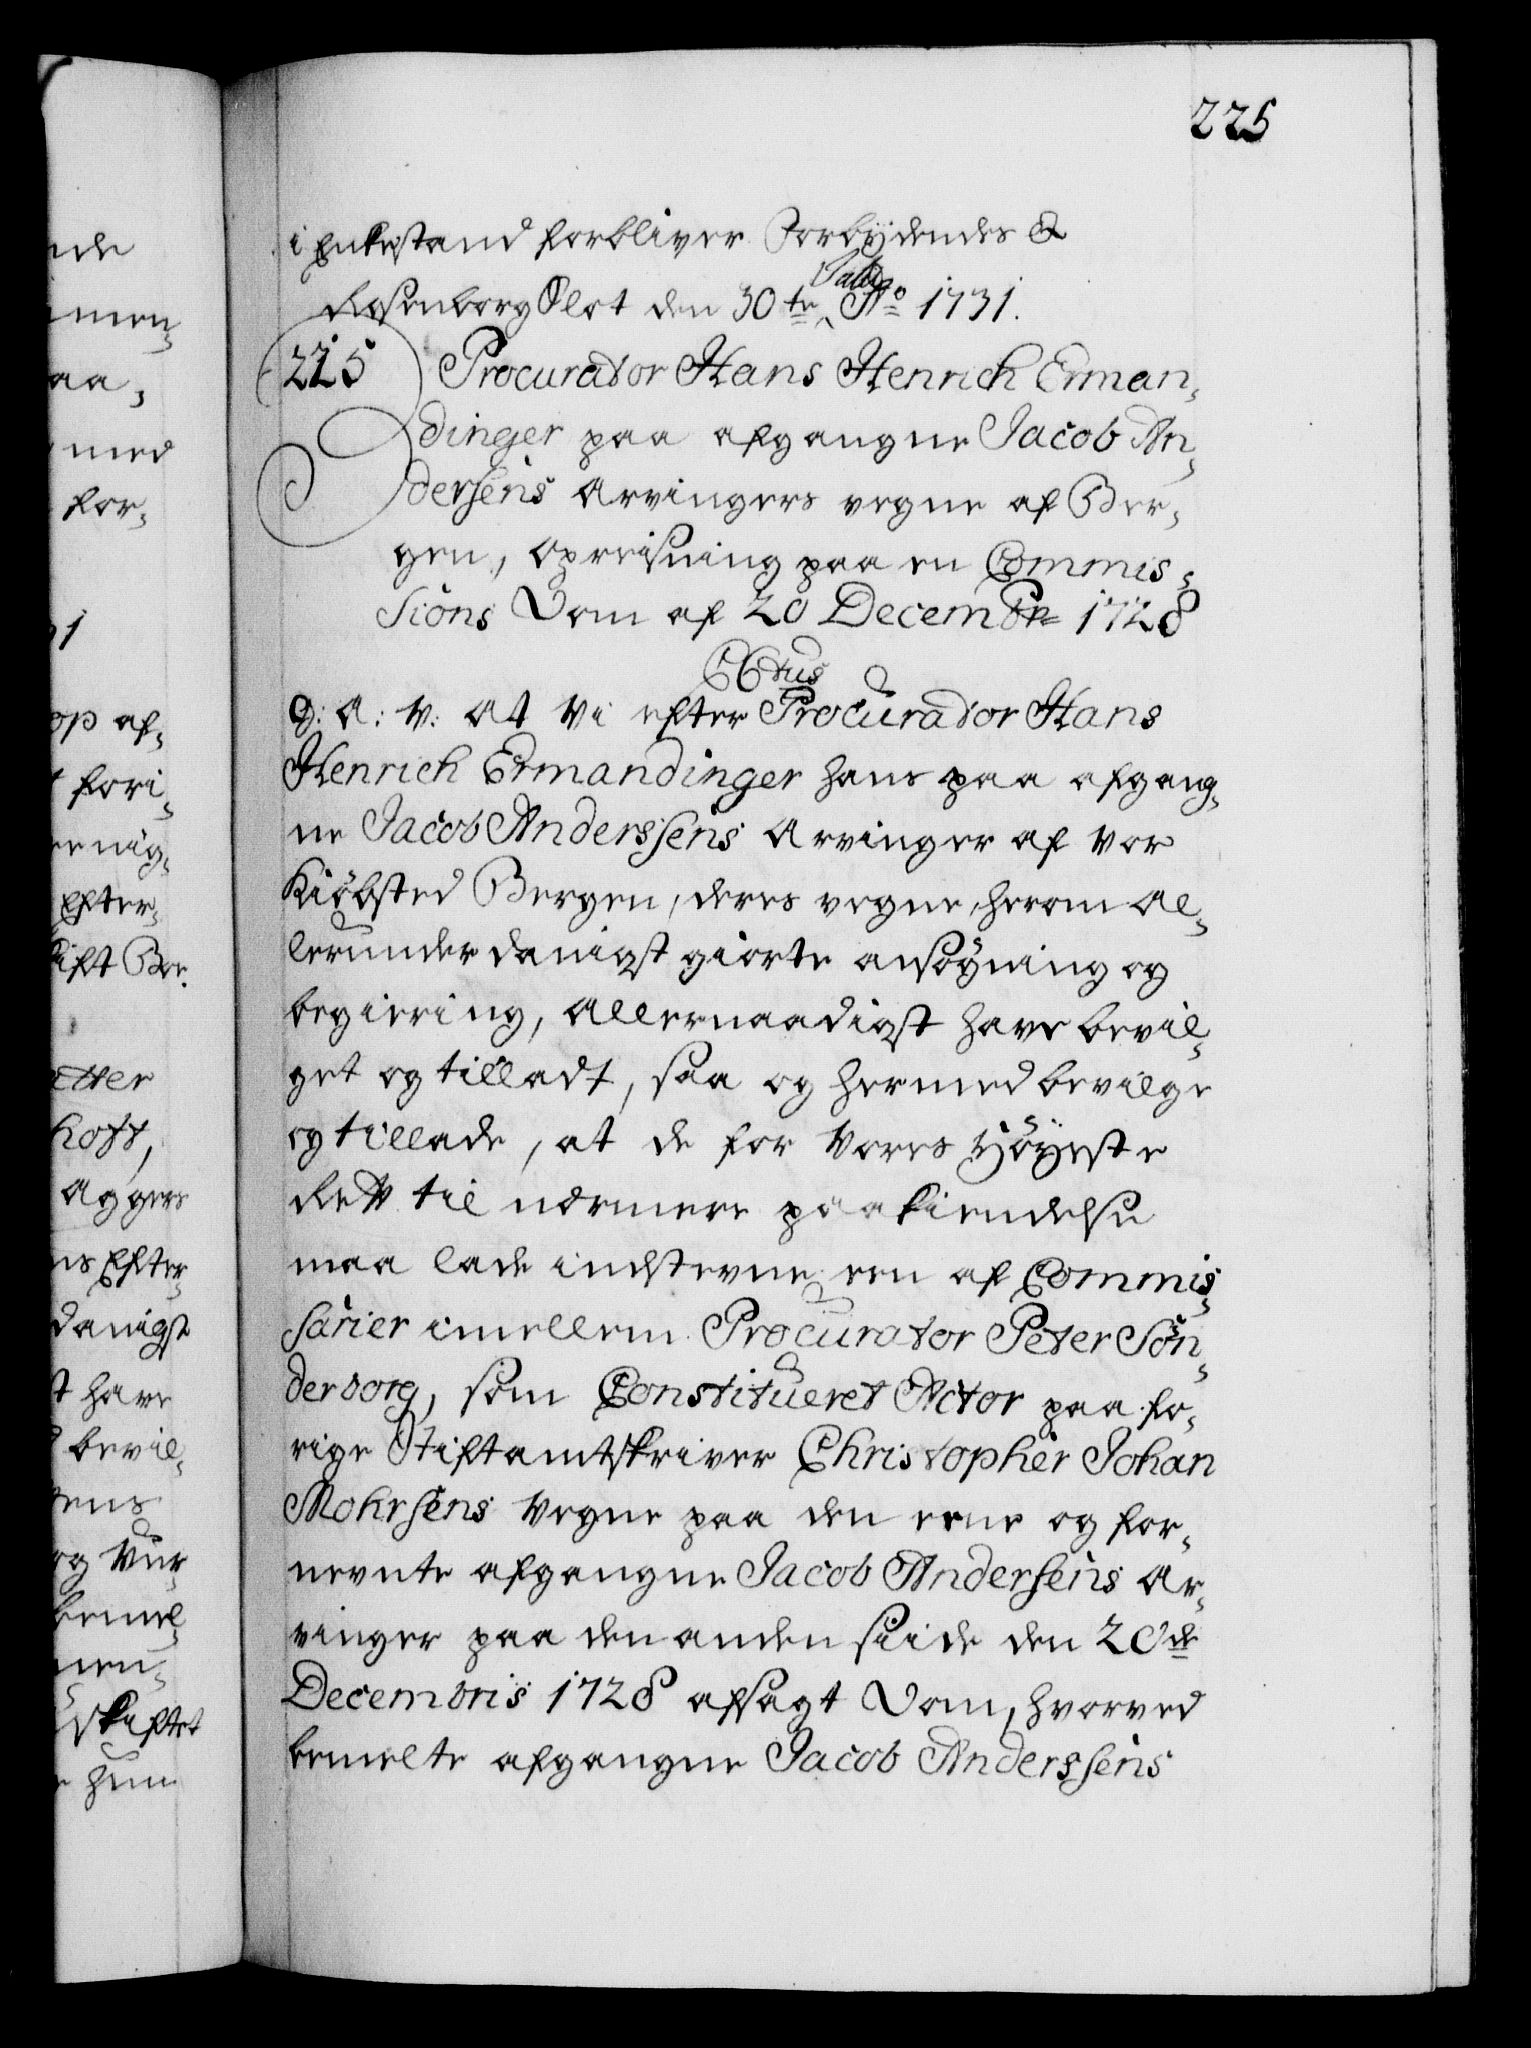 225
i Enkestand forbliver Forbÿdendes &
Rosenborg Slot den 30te Julÿ Ao 1731.
225 Procurator Hans Henrich Erman,
dinger paa afgangne Jacob An,
dersens Arvingers vegne af Ber,
gen, Opreisning paa en Commis,
sions Dom af 20 Decembr 1728
CCtus
G: A: V: At Vi efter Procurator Hans
Henrich Ermandinger hans paa afgang,
ne Jacob Anderssens Arvinger af Vor
Kiöbsted Bergen, deres vegne, herom Al,
lerunderdanigst giorte ansøgning og
begiering, Allernaadigst have bevil,
get og tilladt, saa og hermed bevilge
og tillade, at de for Vores Höÿeste
Rett til nærmere paakiendelse
maa lade indstevne een af Commis,
sarier imellem Procurator Peter Sön,
derborg, som Constitueret Actor paa fo,
rige Stiftamtskriver Christopher Johan
Mohrsens Vegne paa den eene og for,
nevnte afgangne Jacob Andersens Ar,
vinger paa den anden siide den 20de
Decembris 1728 afsagt Dom, hvorved
bemelte afgangne Jacob Anderssens